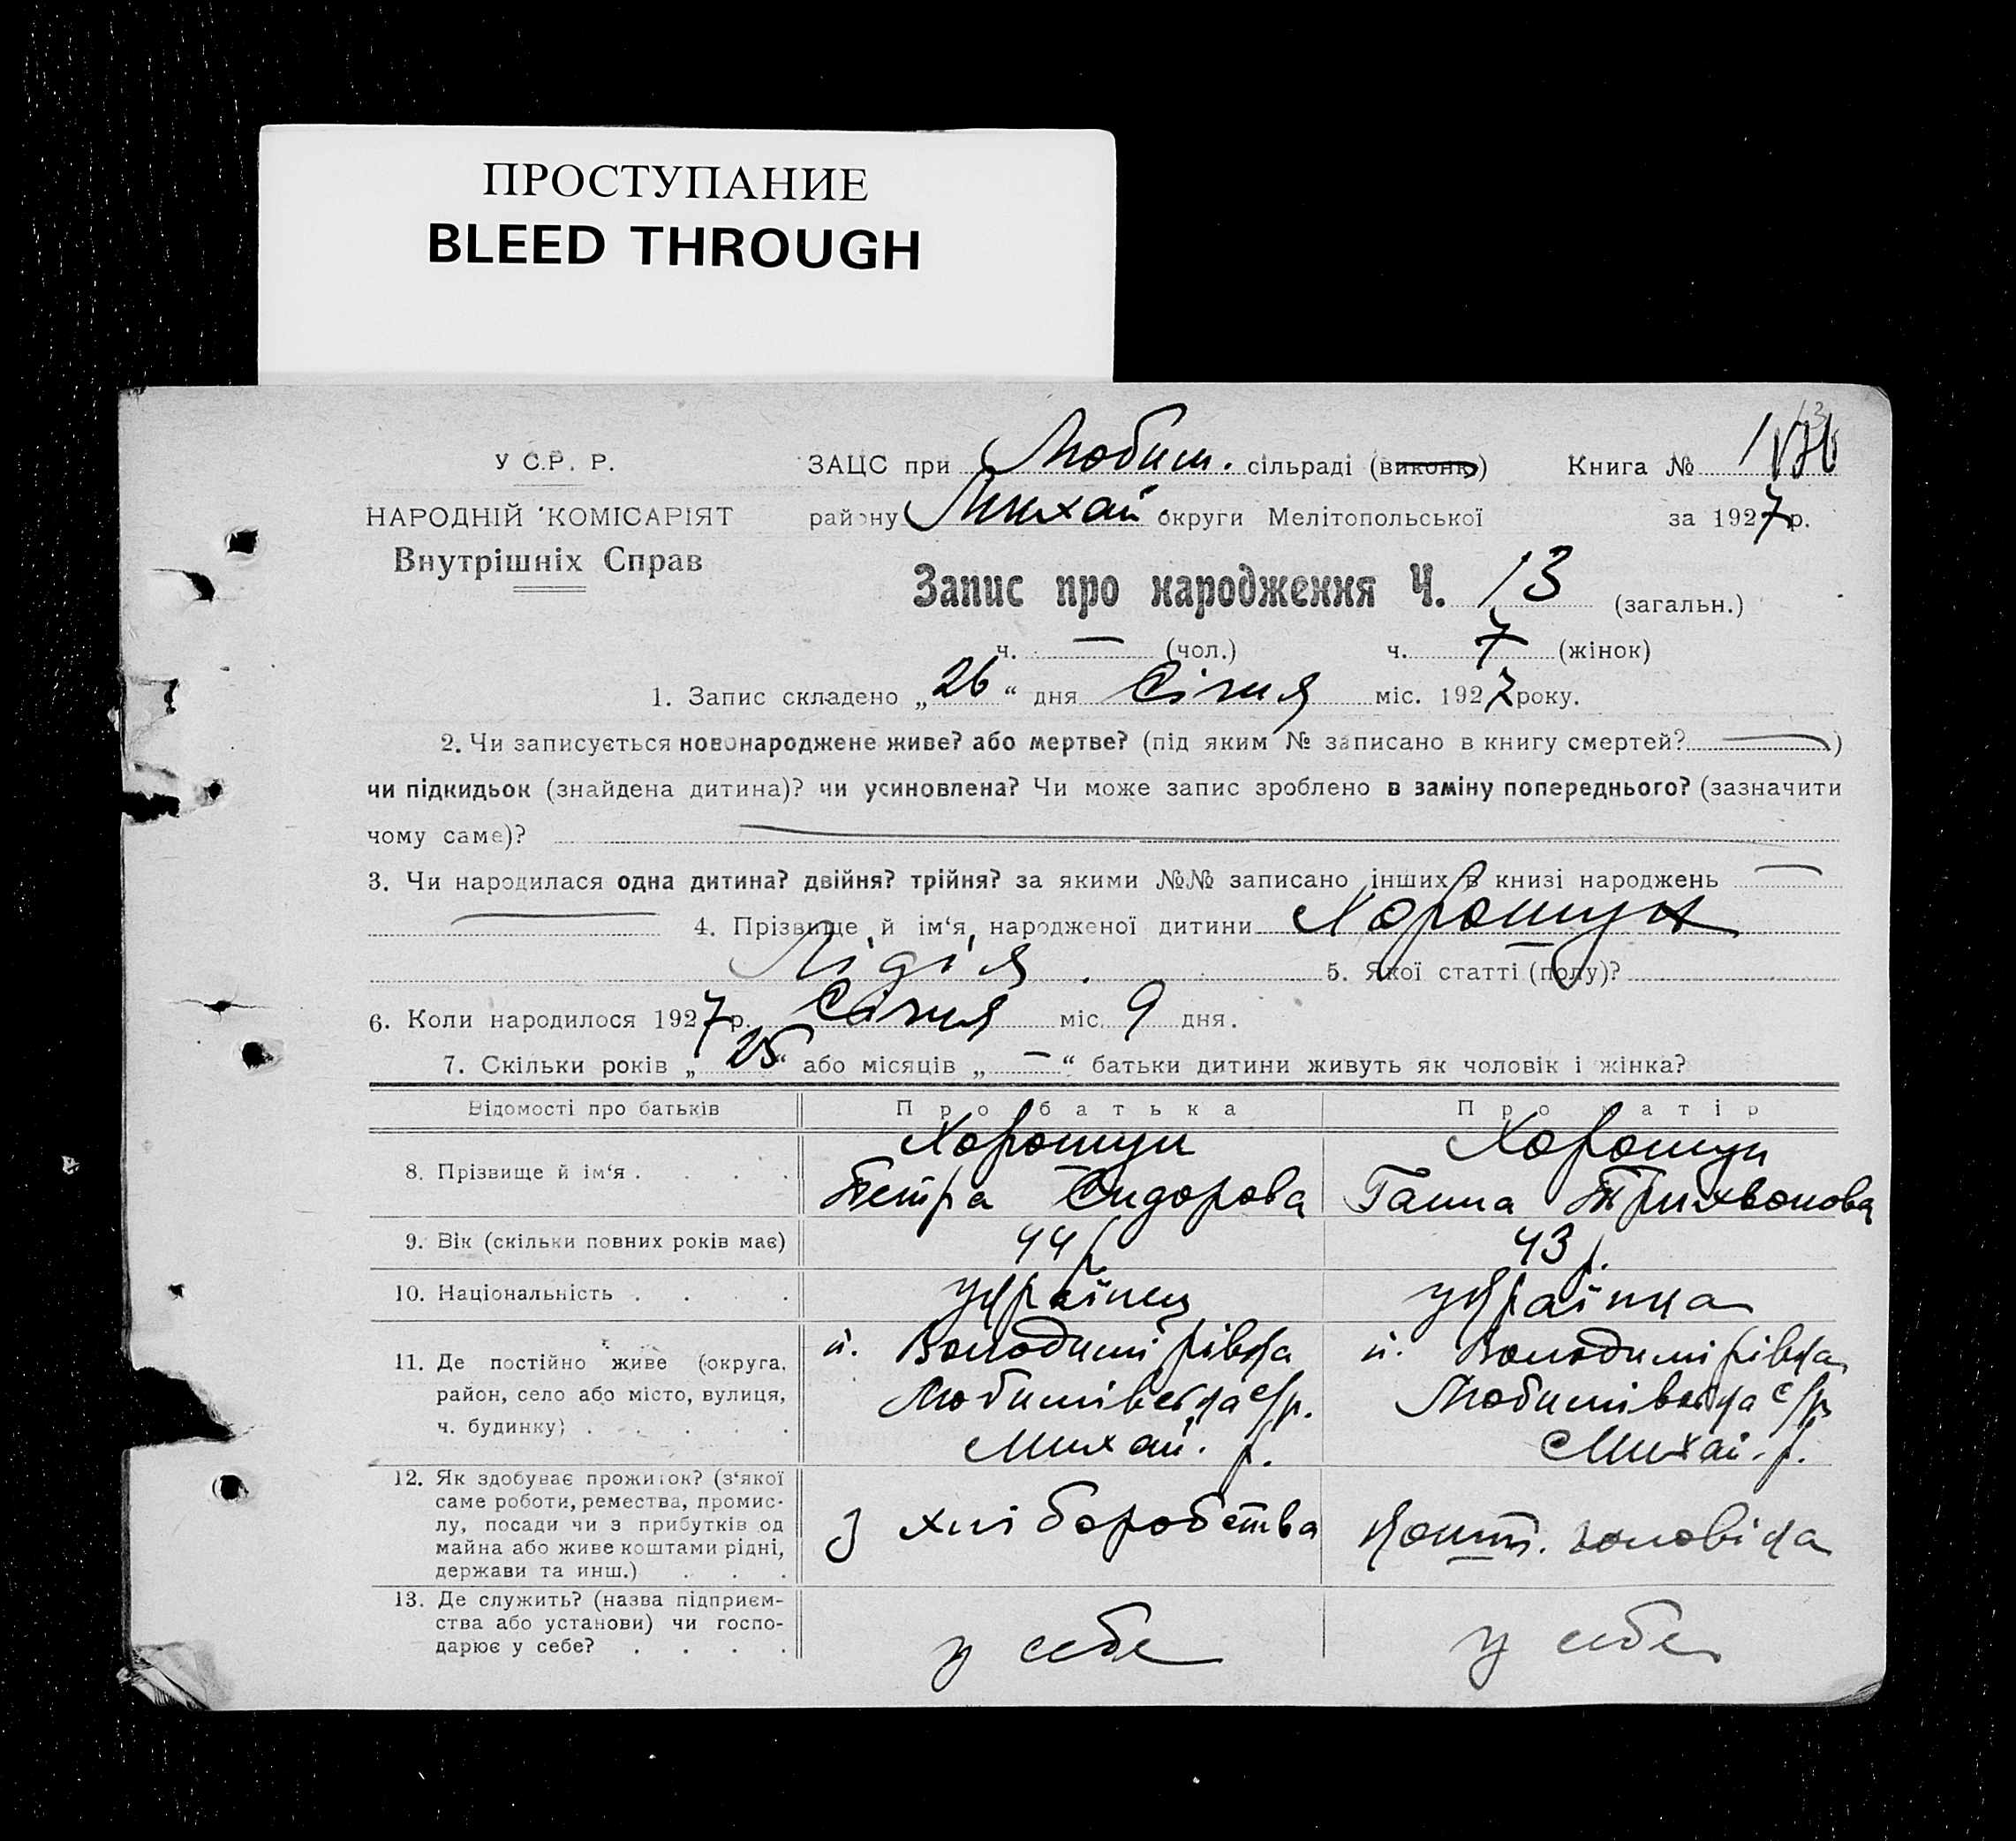 ПРОСТУПАНИЕ
BLEED THROUGH
У С.Р. Р.
ЗАЦС при Любим. сільраді (виконк) Книга №
НАРОДНІЙ КОМІСАРІЯТ
району Михай округи Мелітопольської за 1927 р.
Внутрішніх Справ
Запис про народження Ч. 13 (загальн.)
ч. — (чол.) ч. 7 (жінок)
1. Запис складено „26“ дня Січня міс. 1927 року.
2. Чи записується новонароджене живе? або мертве? (під яким № записано в книгу смертей? — )
чи підкидьок (знайдена дитина)? чи усиновлена? Чи може запис зроблено в заміну попереднього? (зазначити
чому саме)? —
3. Чи народилася одна дитина? двійня? трійня? за якими №№ записано інших в книзі народжень —
— 4. Прізвище й ім'я народженої дитини Хорошун
Лідія . 5. Якої статті (полу)?
6. Коли народилося 1927 р. Січня міс. 9 дня.
7. Скільки років „25“ або місяців „—“ батьки дитини живуть як чоловік і жінка?
Відомості про батьків Про батька Про матір
8. Прізвище й ім‘я . . . . Хорошун Хорошун
Петра Сидорова Ганна Трихвонова
9. Вік (скільки повних років має) 44 р. 43 р.
10. Національність . . . . українец українка
11. Де постійно живе (округа, район, село або місто, вулиця, ч. будинку) . . . . .
п. Володимірівка п. Володимірівка
Любимівська с/р. Любимівська с/р
Михай. р. Михай. р.
12. Як здобуває прожиток? (з‘якої
саме роботи, ремества, промис-
лу, посади чи з прибутків од
майна або живе коштами рідні,
держави та инш.) . . .
з хліборобства кошт. чоловіка
13. Де служить? (назва підприєм-
ства або установи) чи госпо-
дарює у себе? . . . .
у себе у себе